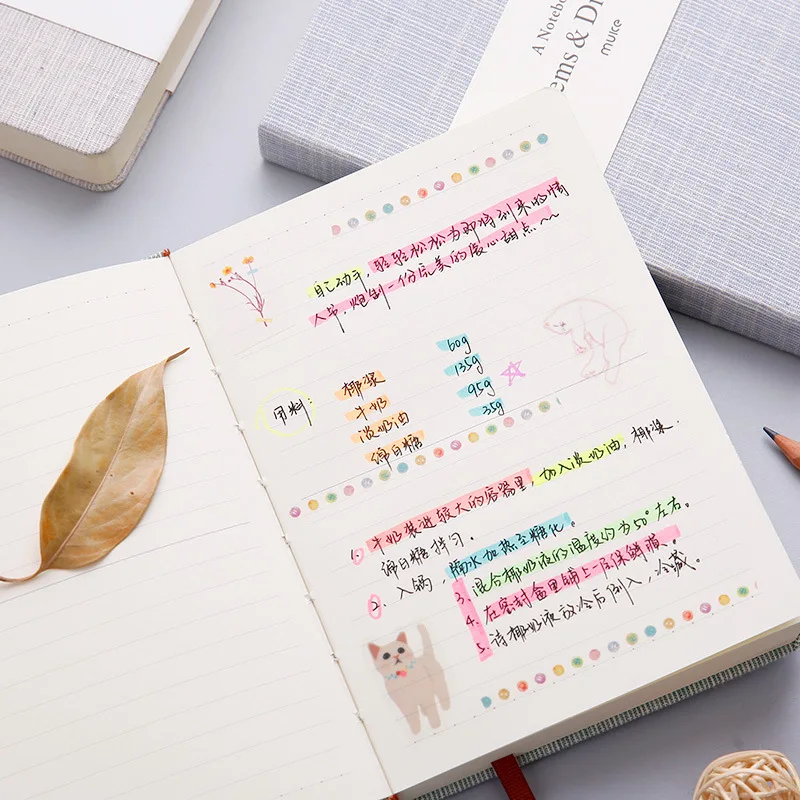 A Notebo
ems & Di
muice
自己动手，轻轻松松为即将到来的情
人节，炮制一份完美的暖心甜点~~
用料：
椰浆 60g
牛奶 135g
淡奶油 95g
绵白糖 35g
1. 牛奶装进较大的容器里，加入淡奶油，椰浆.
绵白糖拌匀。
2. 入锅，隔水加热至糖化。
3. 混合椰奶液的温度约为50°左右。
4. 在密封盒里铺上一层保鲜膜。
5. 待椰奶液放冷后倒入，冷藏。